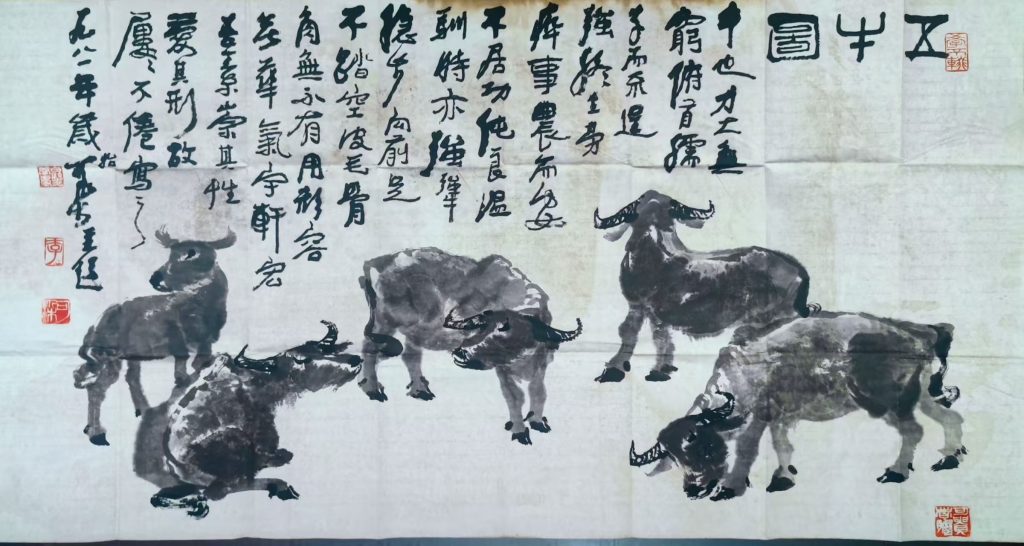 五牛圖
牛也力大無
窮俯首孺
子而不逞
強終生勞
瘁事農而安
不居功純良溫
馴時亦強犟
穩步向前足
不踏空皮毛骨
角無不有用形容
無華氣宇軒宏
吾素崇其性
愛其形故
屢々不倦寫之
一九八一年歲始可染